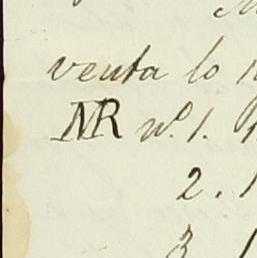 venta lo
NR nº. 1.
2.
3